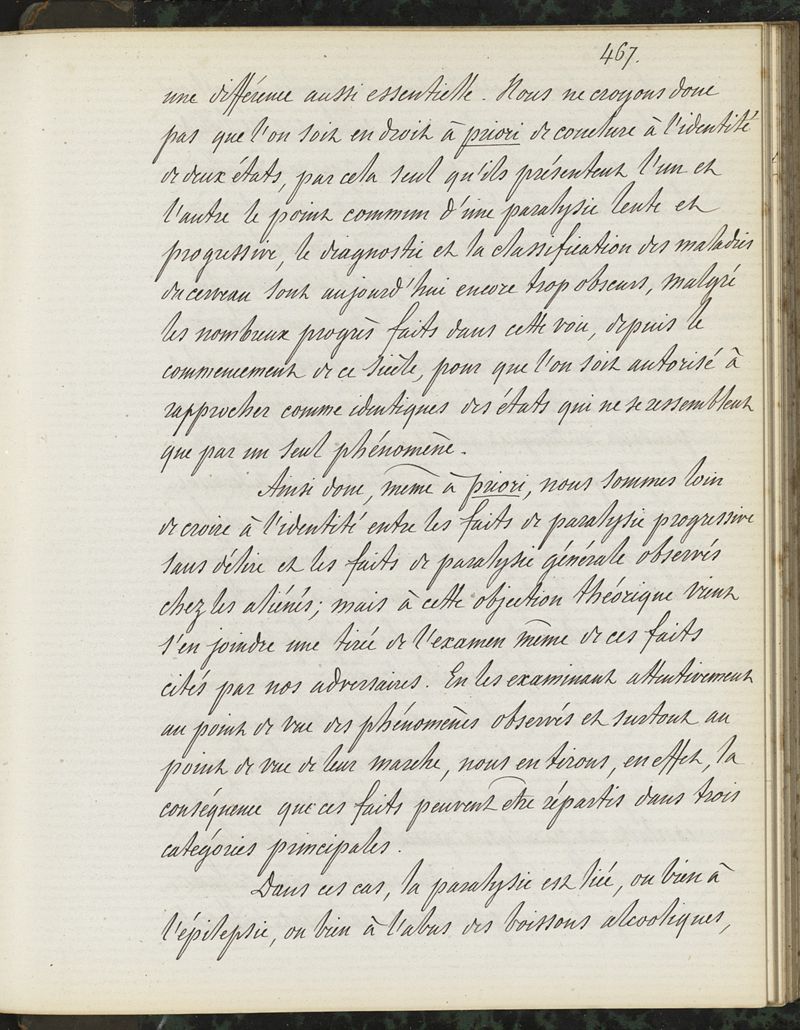 467.
une différence aussi essentielle. Nous ne croyons donc
pas que l'on soit en droit à priori de conclure à l'identité
de deux états, par cela seul qu'ils présentent l'un et
l'autre le point commun d'une paralysie lente et
progressive, le diagnostic et la classification des maladies
du cerveau sont aujourd'hui encore trop obscurs, malgré
les nombreux progrès faits dans cette voie, depuis le
commencement de ce siècle, pour que l'on soit autorisé à
rapprocher comme identiques des états qui ne se ressemblent
que par un seul phénomène.
Ainsi donc, même à priori, nous sommes loin
de croire à l'identité entre les faits de paralysie progressive
sans délire et les faits de paralysie générale observés
chez les aliénés; mais à cette objection théorique vient
s'en joindre une tirée de l'examen même de ces faits
cités par nos adversaires. En les examinant attentivement
au point de vue des phénomènes observés et surtout au
point de vue de leur marche, nous en tirons, en effet, la
conséquence que ces faits peuvent être répartis dans trois
catégories principales.
Dans ces cas, la paralysie est liée, ou bien à
l'épilepsie, ou bien à l'abus des boissons alcooliques,